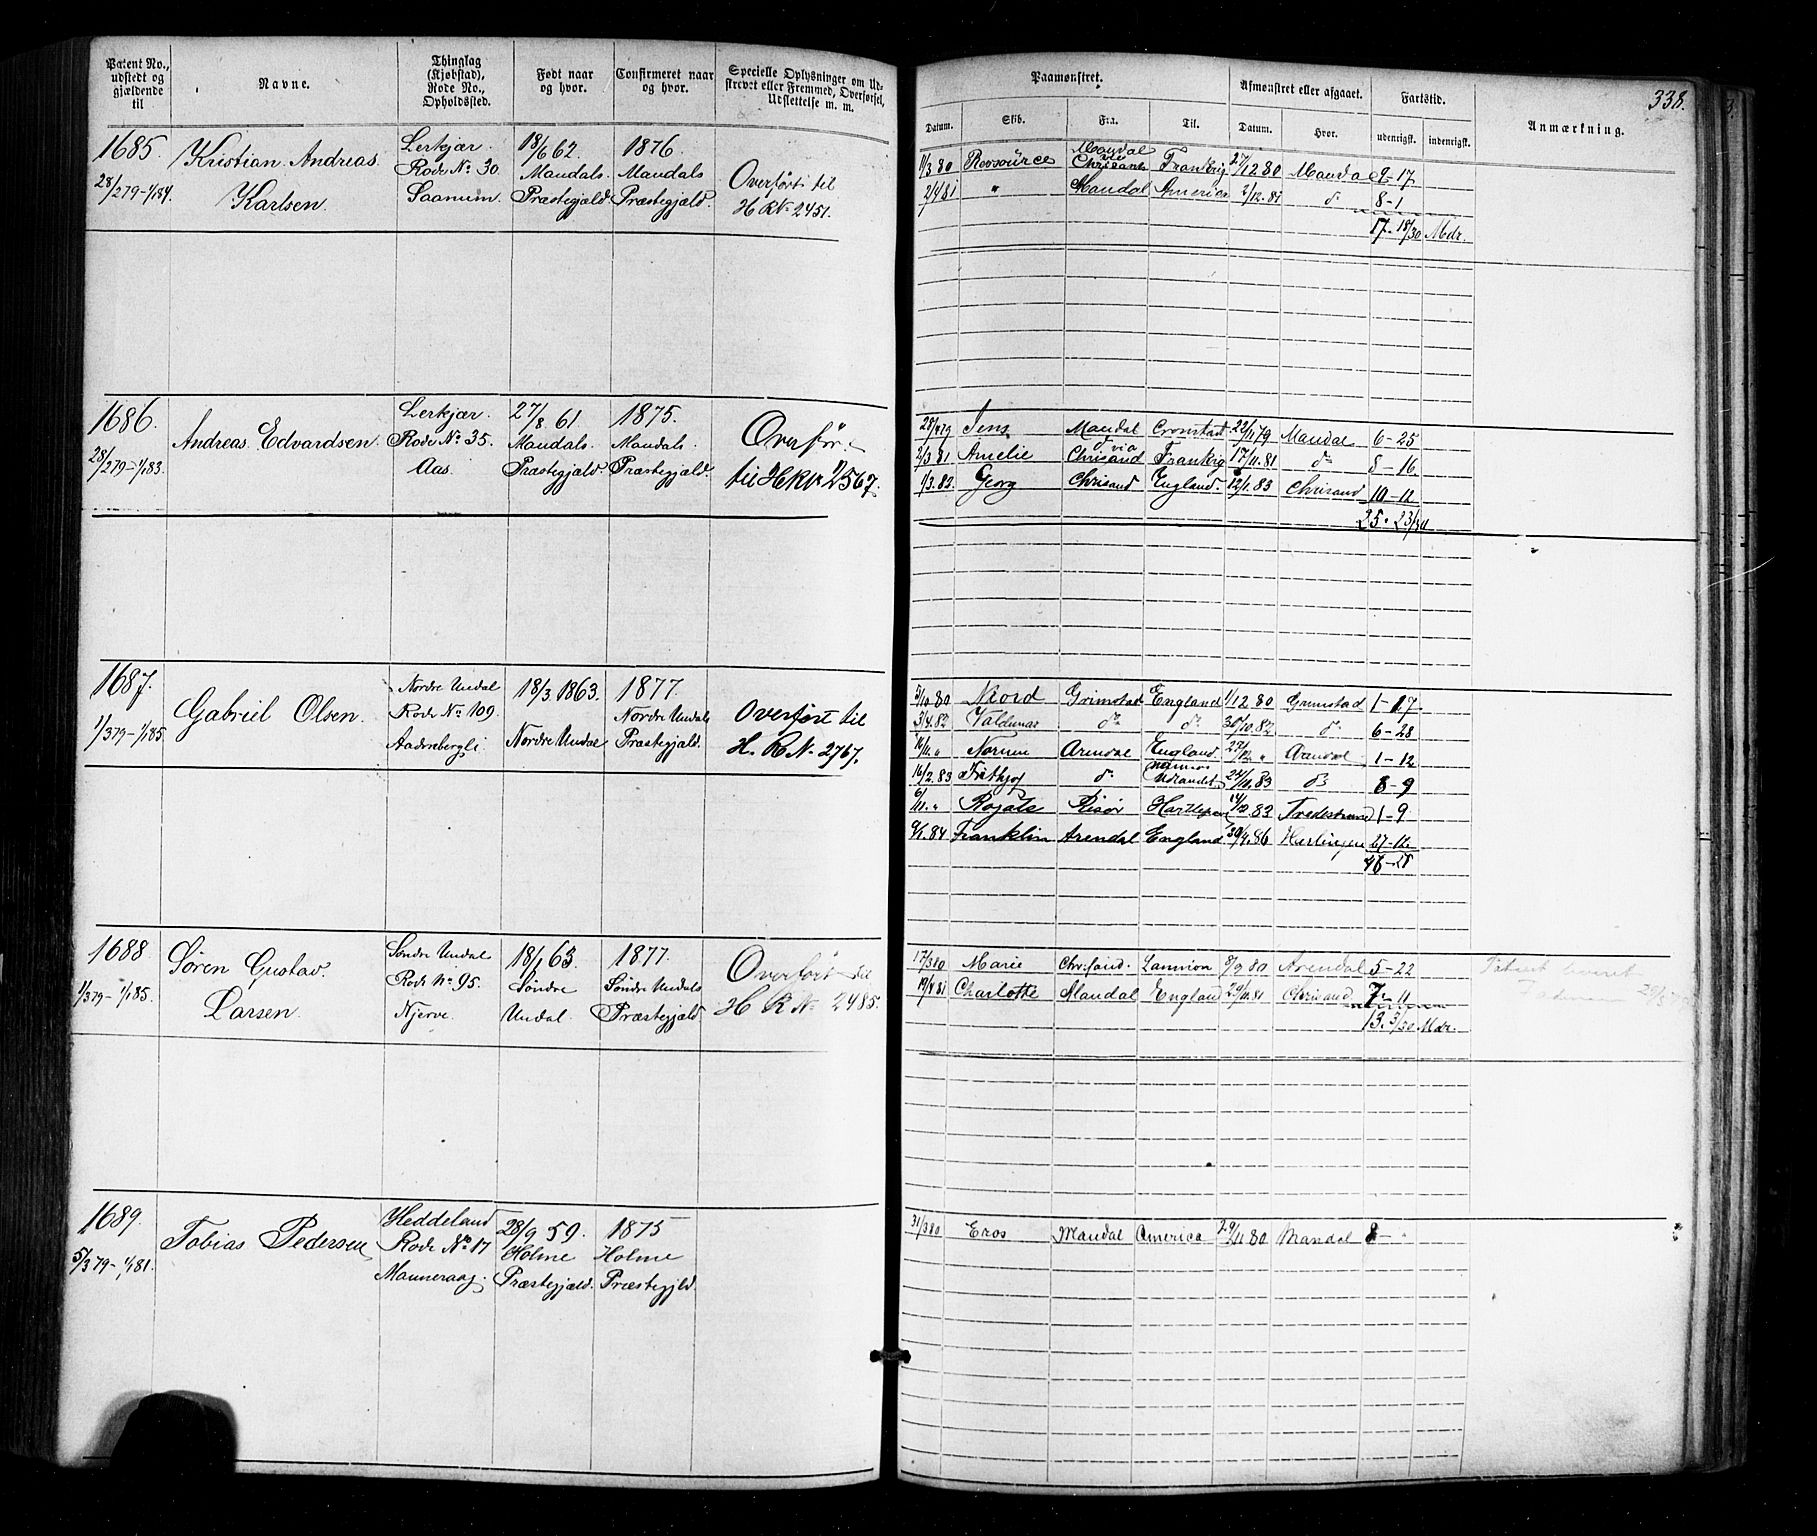 Patent No., udstedt og gjældende til
Navne.
Thinglag (Kjøbstad), Rode No., Opholdssted.
Født naar og hvor.
Confirmeret naar og hvor.
Specielle Oplysninger om Udskrevet eller Fremmed, Overførsel, Udslettelse m. m.
Paamønstret.
Afmønstret eller afgaaet.
Fartstid.
Anmærkning.
338.
Datum.
Skib.
Fra.
Til.
Datum.
Hvor.
udenrigsk.
indenrigsk.
1685.
28/2 79 - 1/1 84.
Kristian Andreas
Karlsen.
Lerkjær.
Rode No. 30
Saanum.
18/6 62
Mandals
Præstegjæld
1876
Mandals
Præstegjæld.
Overført til
H R No 2451.
11/3 80 Ressource Mandal via Chrisand Frankrig 27/12 80 Mandal 9-17
2/4 81 " Mandal America 2/12 81 do 8-1
17. 18/30 Mdr.
1686.
28/2 79 - 1/1 83.
Andreas Edvardsen.
Lerkjær.
Rode No. 35.
Aas.
27/8 61
Mandals
Præstegjæld.
1875.
Mandals
Præstegjæld.
Overført
til H R No 2567.
28/4 79 Jens Mandal Cronstad 22/11 79 Mandal 6-25
2/3 81 Amelie do via Chrisand Frankrig 17/11 81 do 8-16
1/3 82 Georg Chrisand England. 12/1 83 Chrisand 10-12
25. 23/30
1687.
1/3 79 - 1/1 85
Gabriel Olsen.
Nordre Undal
Rode No. 109.
18/3 1863.
Nordre Undal
1877.
Nordre Undals
Præstegjæld.
Overført til
H. R. No. 2767.
5/10 80 Njord Grimstad England 1/12 80 Grimstad 1-17
3/4 82 Valdemar do do 30/10 82 do 6-28
16/11 " Arendal England 27/12 " Arendal 1-12
16/2 83 Frithjof do Udlandet 24/10 83 do 8-9
6/11 " Risør 14/12 83 1-9
9/1 84 Franklin Arendal England 20/4 86 Harlingen 27-12.
46-28
1688
1/3 79 - 1/1 85.
Søren Gustav
Larsen.
Søndre Undal
Rode No. 95.
Njerve.
18/1 63.
Søndre
Undal.
1877.
Søndre Undals
Præstegjæld
Overført til
H R No 2485.
17/3 80 Marie Chr.sand. Lannion 8/9 80 Arendal 5-22
19/4 81 Charlotte Mandal England 29/11 81 Chrisand 7-11
13. 3/30 Mdr.
1689.
5/3 79 - 1/1 81.
Tobias Pedersen
Heddeland
Rode No. 17
Manneraag.
28/9 59.
Holme
Præstegjæld.
1875
Holme
Præstegjld.
31/3 80 Eros Mandal America 29/11 80 Mandal 8 -